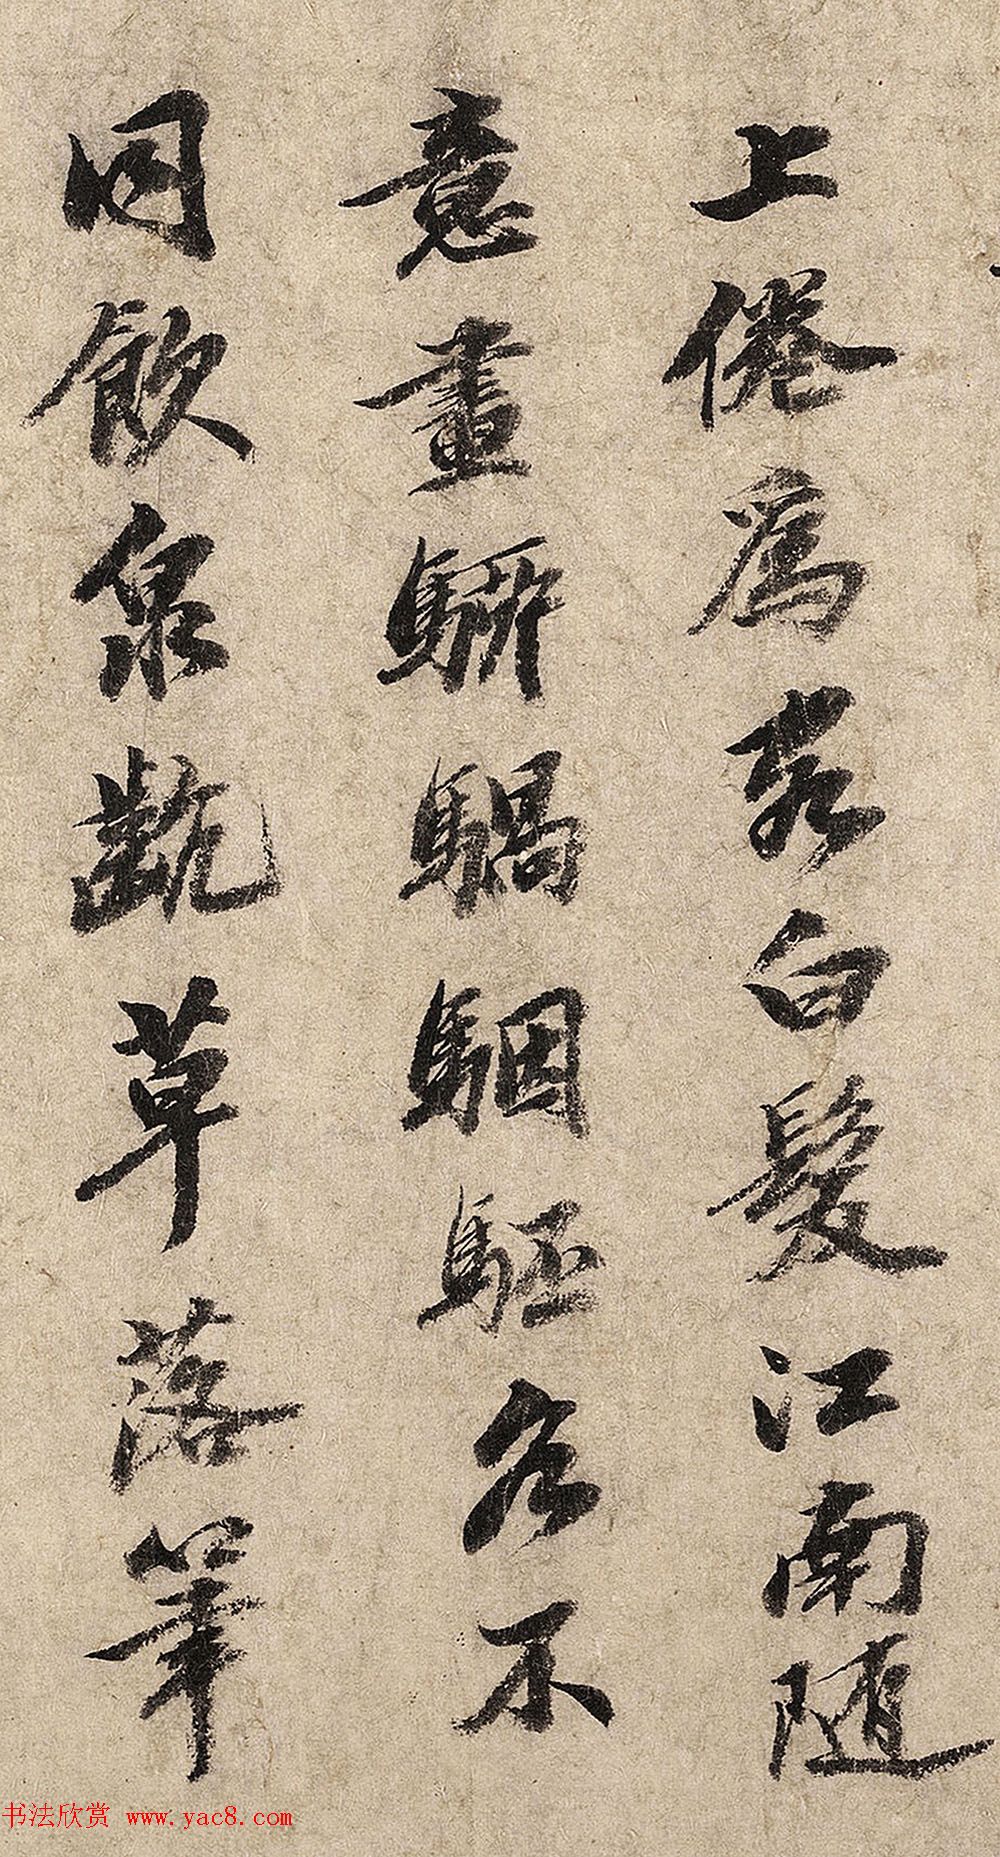 上倦為客白髮江南随
意畫騂騧駰駓各不
同飲泉齕草落筆
书法欣赏 www.yac8.com